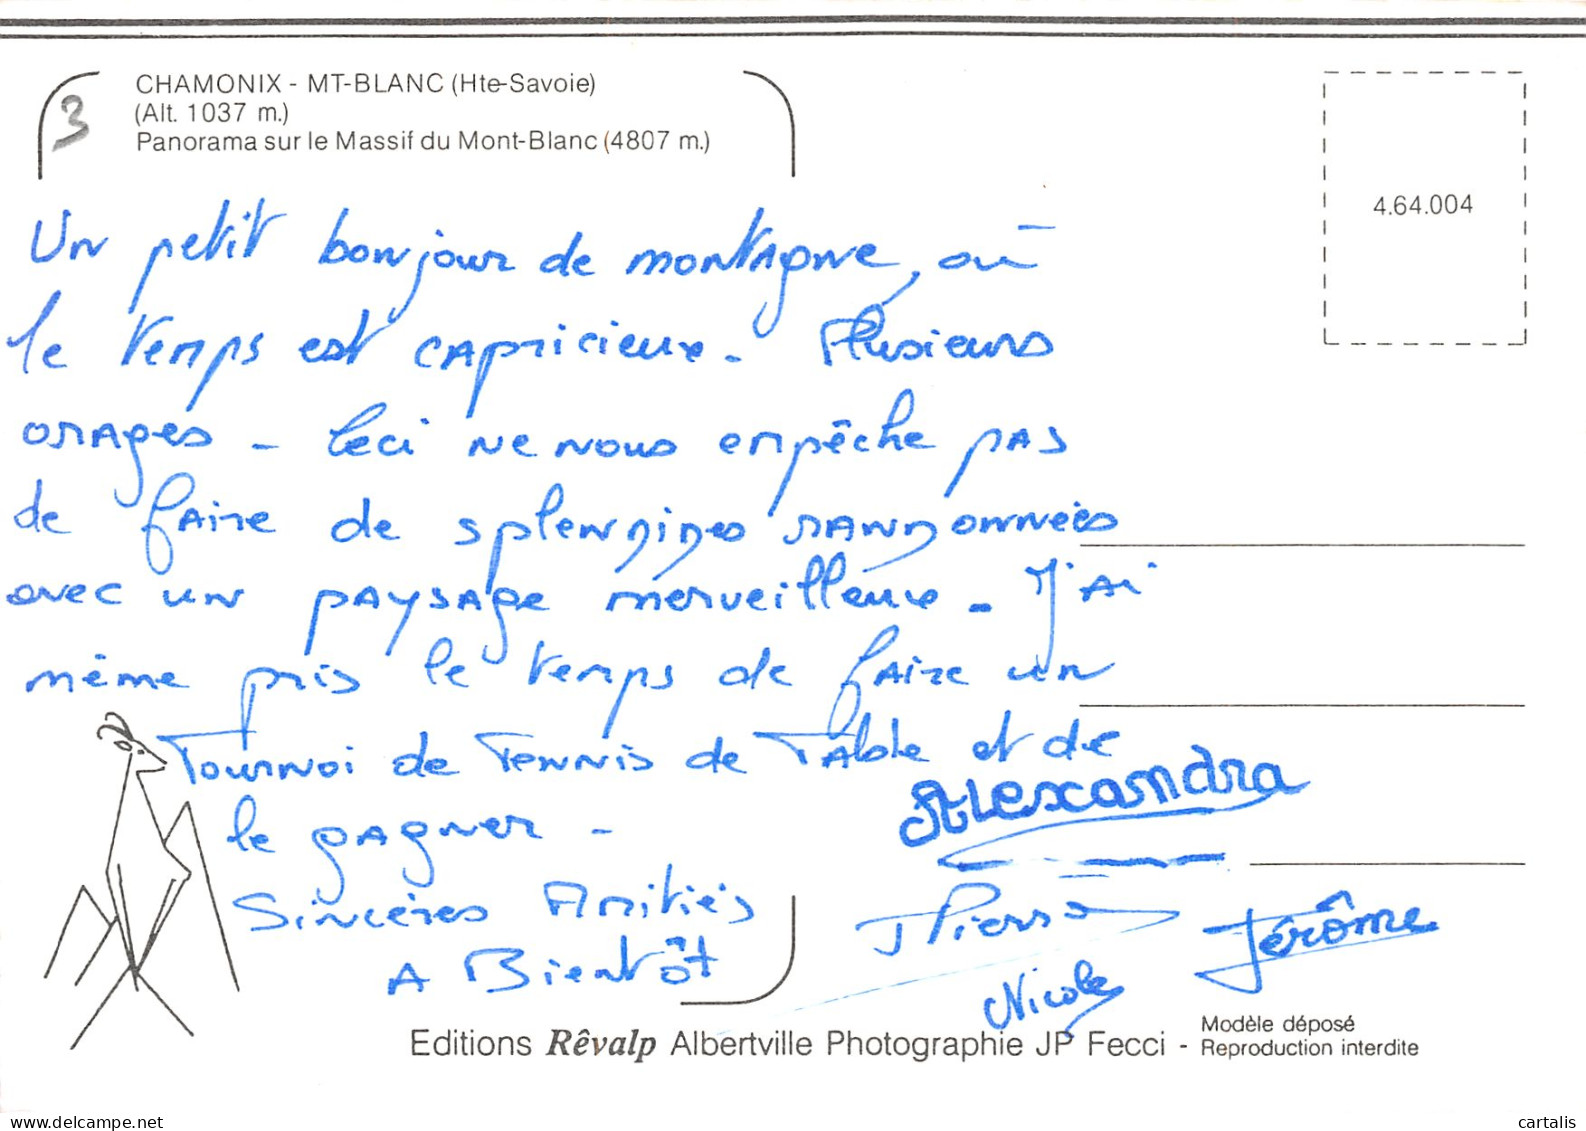 CHAMONIX - MT-BLANC (Hte-Savoie)
(Alt. 1037 m.)
Panorama sur le Massif du Mont-Blanc (4807 m.)
3
4.64.004
Un petit bonjour de montagne, où
le temps est capricieux. Plusieurs
orages - Ceci ne nous empêche pas
de faire de splendides randonnées
avec un paysage merveilleux - J'ai
même pris le temps de faire un
Tournoi de Tennis de Table et de
le gagner -
Sincères Amitiés
A Bientôt
Alexandra
JPierre
Jérôme
Nicole
Editions Rêvalp Albertville Photographie JP Fecci -
Modèle déposé
Reproduction interdite
delcampe.net
cartalis